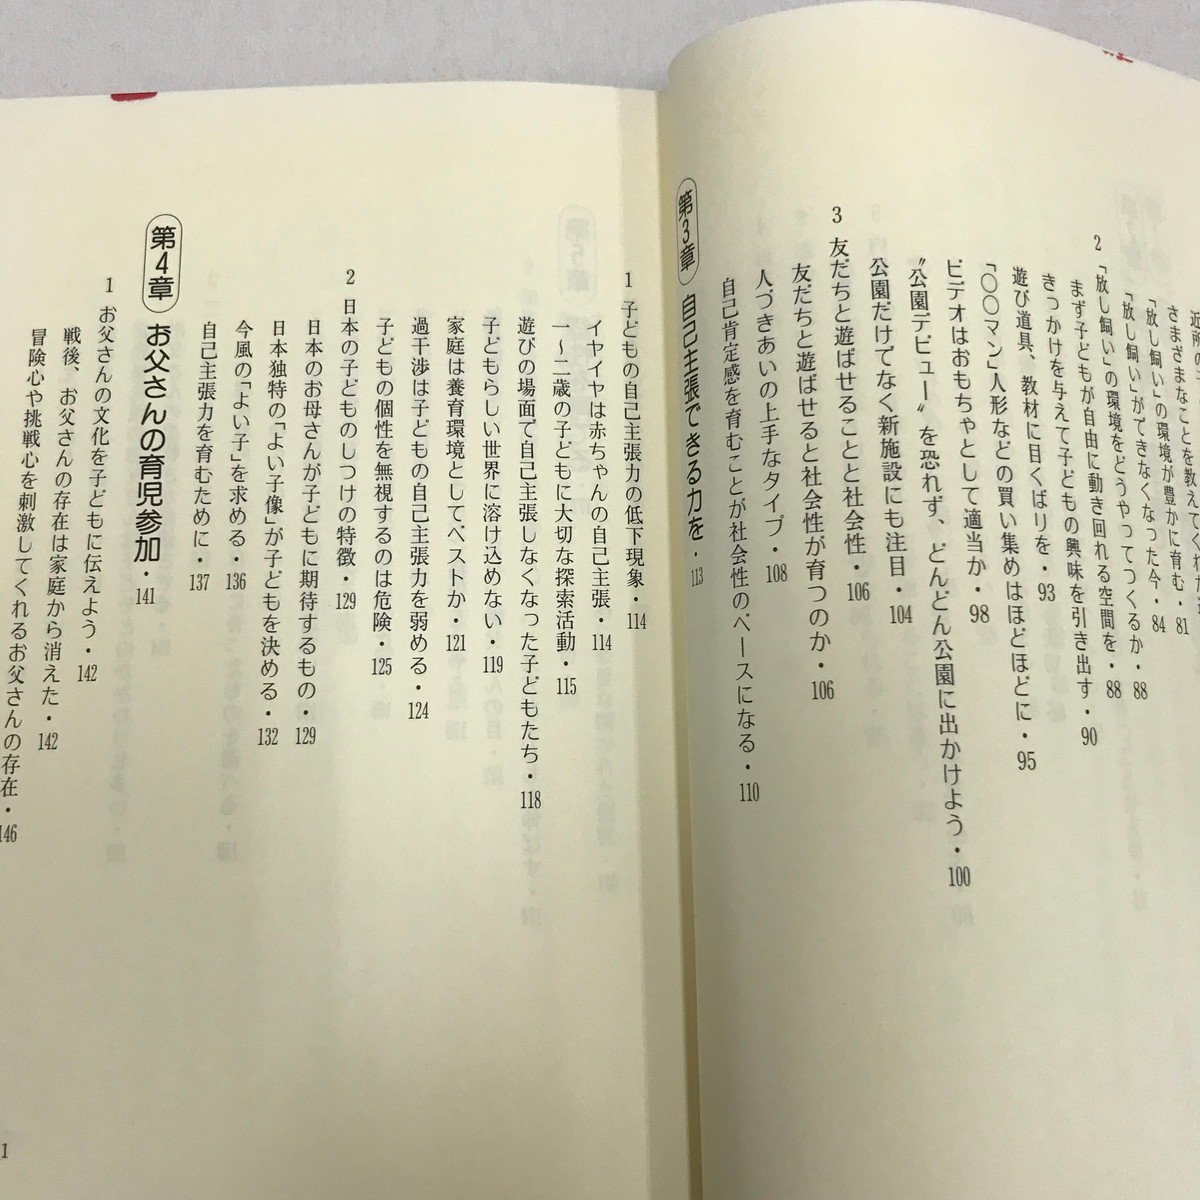 さまざまなことを教えてくれ
「放し飼い」の環境が豊かに育む・81
「放し飼い」ができなくなった今・84
2 「放し飼い」の環境をどうやってつくるか・88
まず子どもが自由に動き回れる空間を・88
きっかけを与えて子どもの興味を引き出す・90
遊び道具、教材に目くばりを・93
「〇〇マン」人形などの買い集めはほどほどに・95
ビデオはおもちゃとして適当か・98
〝公園デビュー〟を恐れず、どんどん公園に出かけよう・100
公園だけでなく新施設にも注目・104
3 友だちと遊ばせることと社会性・106
友だちと遊ばせると社会性が育つのか・106
人づきあいの上手なタイプ・108
自己肯定感を育むことが社会性のベースになる・110
第3章 自己主張できる力を・113
1 子どもの自己主張力の低下現象・114
イヤイヤは赤ちゃんの自己主張・114
一〜二歳の子どもに大切な探索活動・115
遊びの場面で自己主張しなくなった子どもたち・118
子どもらしい世界に溶け込めない・119
家庭は養育環境としてベストか・121
過干渉は子どもの自己主張力を弱める・124
子どもの個性を無視するのは危険・125
2 日本の子どものしつけの特徴・129
日本のお母さんが子どもに期待するもの・129
日本独特の「よい子像」が子どもを決める・132
今風の「よい子」を求める・136
自己主張力を育むために・137
第4章 お父さんの育児参加・141
1 お父さんの文化を子どもに伝えよう・142
戦後、お父さんの存在は家庭から消えた・142
冒険心や挑戦心を刺激してくれるお父さんの存在・146
1